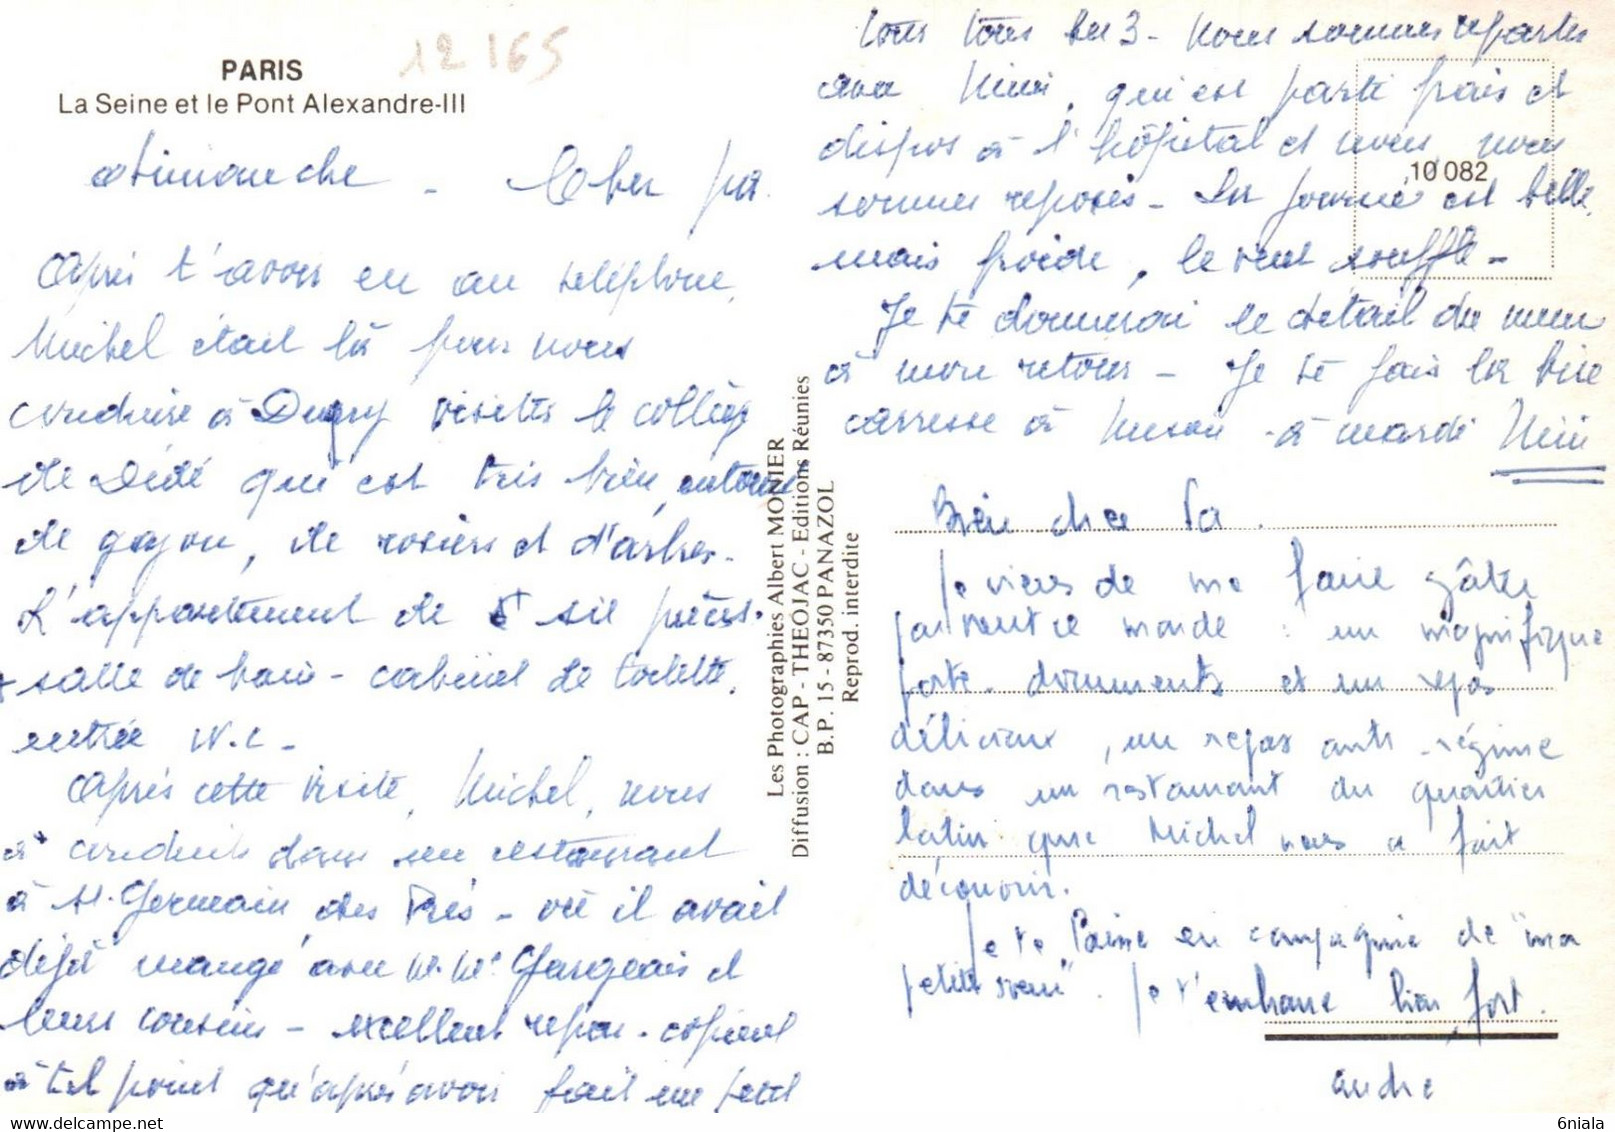 12 165
PARIS
La Seine et le Pont Alexandre-III
dimanche -
Après t'avoir eu au téléphone,
Michel était là pour nous
conduire à Dugny visiter le collège
de Dédé qui est très bien, entouré
de gazon, de rosiers et d'arbres.
L'appartement de 5 six pièces.
salle de bain - cabinet de toilette,
entrée W.C -
Après cette visite, Michel, nous
a conduits dans un restaurant
à St. Germain des Prés - où il avait
déjà mangé avec
leurs cousins - excellent repas - copieux
à tel point qu'après avoir fait un petit
tous les 3 - Nous sommes reparties
avec Mimi, qui est partie frais et
dispos à l'hôpital et nous, nous
sommes reposés - La journée est belle,
mais froide, le vent souffle -
Je te donnerai le détail du menu
à mon retour - Je te fais la bise
caresse à - à mardi Mimi
Bien cher Pa.
Je viens de me faire gâter
par tout ce monde : un magnifique
porte-documents et un repas
délicieux, un repas anti-régime
dans un restaurant du quartier
latin que Michel nous a fait
découvrir.
Je te laisse en compagnie de "ma
petite soeur". Je t'embrasse bien fort.
André
10 082
Les Photographies Albert MONIER
Diffusion : CAP - THEOJAC - Editions Réunies
B.P. 15 - 87350 PANAZOL
Reprod. interdite
6niala